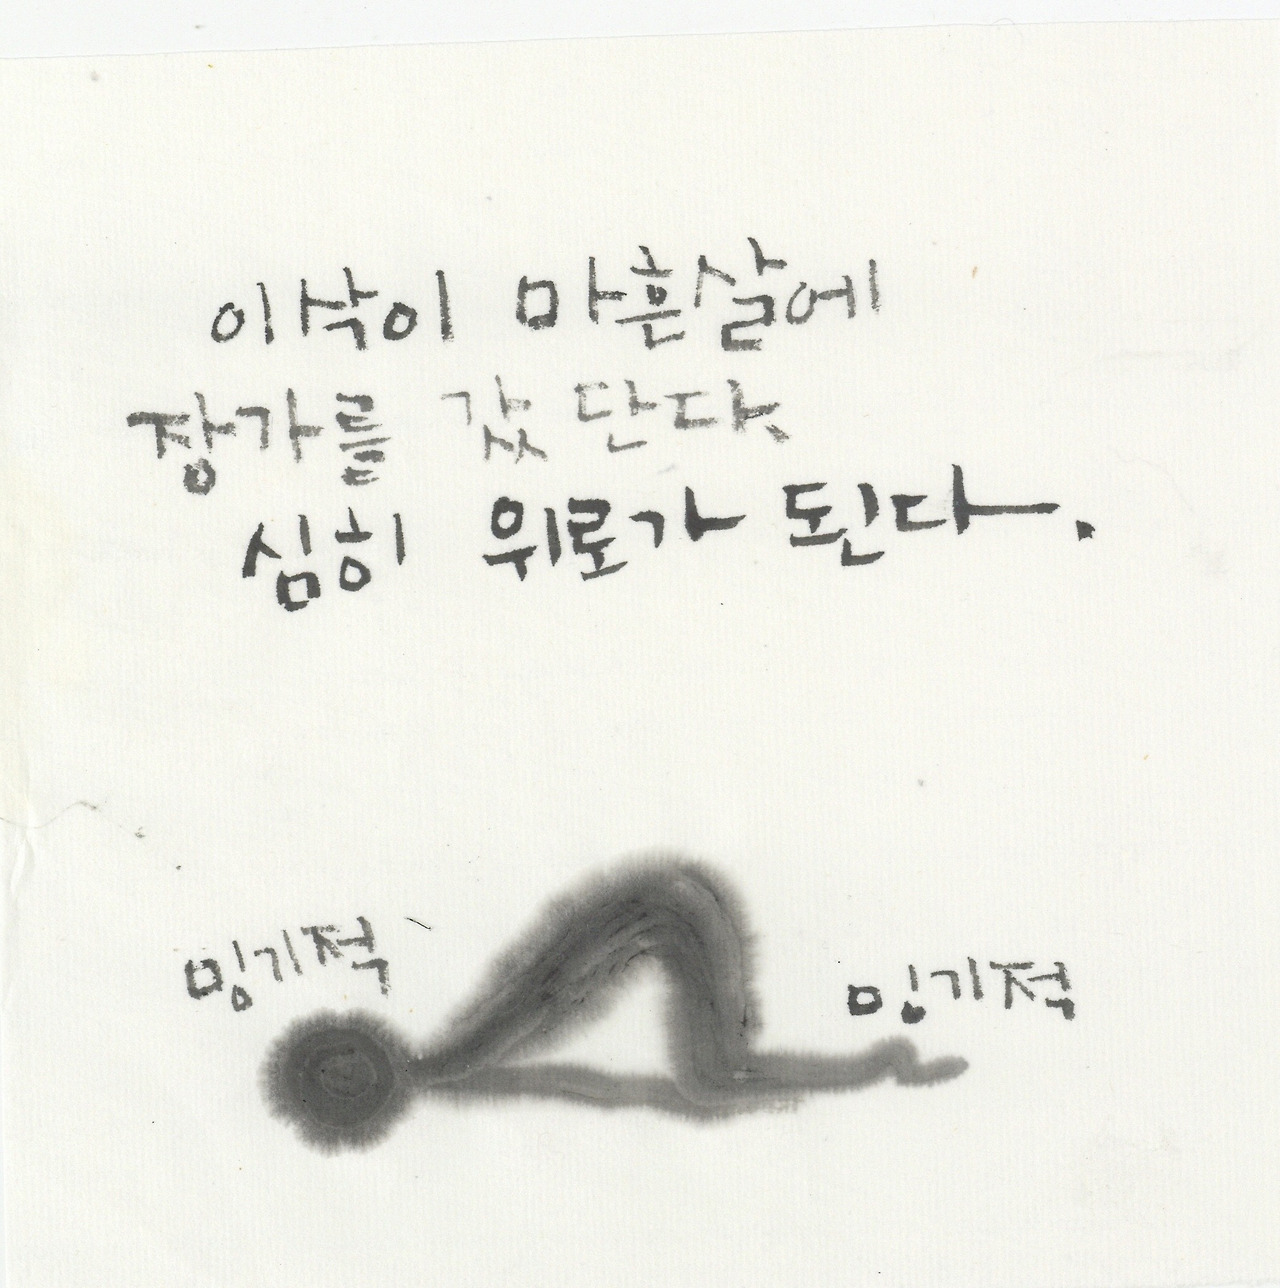 이삭이 마흔살에
장가를 갔단다.
심히 위로가 된다.
밍기적
밍기적